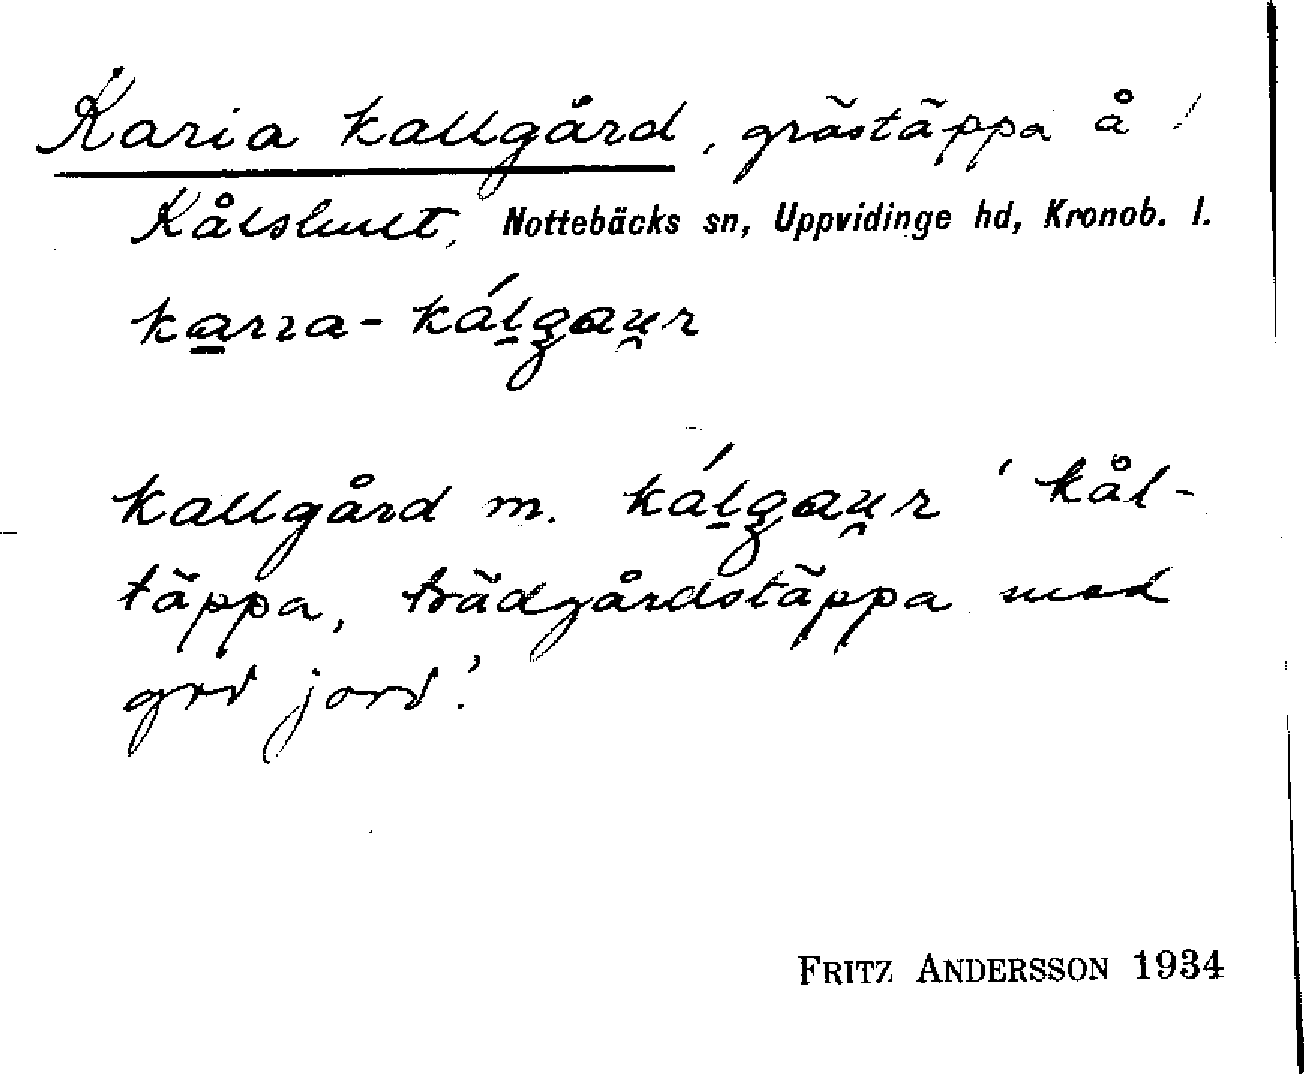 Karia kallgård, grästäppa å
Kålshult, Nottebäcks sn, Uppvidinge hd, Kronob. l.
karra-kálgau̯r
kallgård m. kálgau̯r 'kål-
täppa, trädgårdstäppa med
god jord'.
FRITZ ANDERSSON 1934